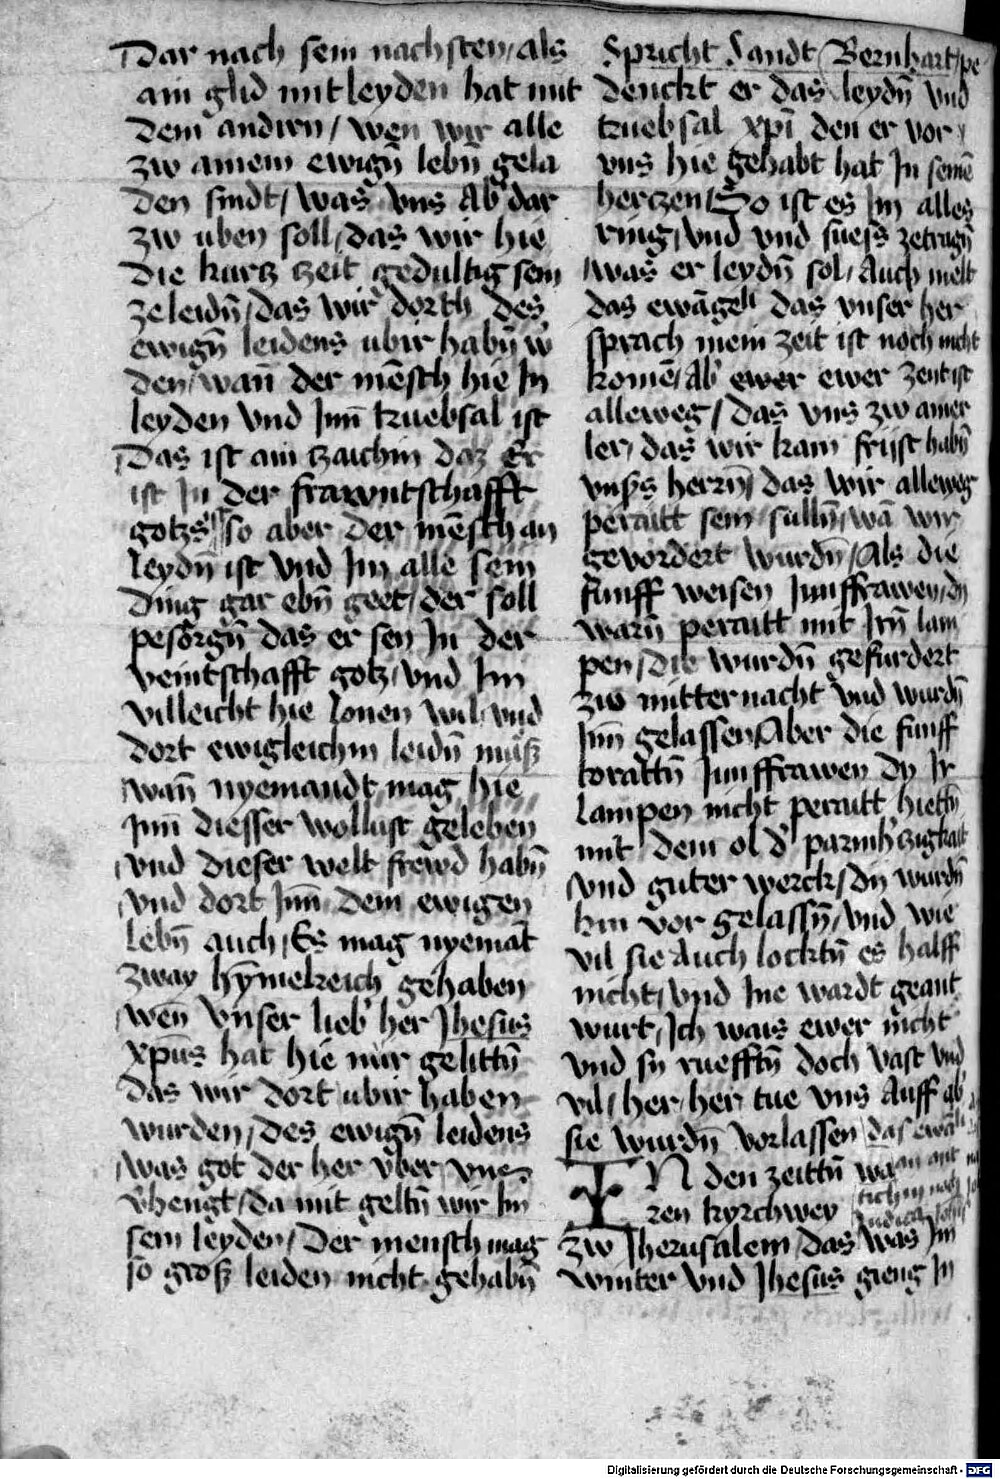 Dar nach sein nachsten / als
ain glid mit leyden hat mit
dem andirn / wen wir alle
zw ainem ewigñ lebñ gela
den sindt / was vns Ab' dar
zw uben soll / das wir hie
die kurtz zeit gedultig sein
ze leidñ / das wir dorth des
ewigñ leidens ubir habñ w'
den / wañ der mēsch hie In
leyden vnd Inn truebsal ist
Das ist ain tzaichin daz Er
ist In der frawntschafft
gotzs so aber der mēsch an
leydñ ist vnd Im alle sein
ding gar ebñ geet / der soll
pesorgñ das er sey In der
veintschafft gotz / vnd Im
villeicht hie lonen wil vnd
dort ewigleichin leidñ muß
wañ nyemandt mag hie
Inn diesser wollust geleben
vnd dieser welt frewd habñ
vnd dort Inn dem ewigen
lebñ auch / Es mag nyemāt
zway hymelreich gehaben
wen vnser lieb' her Jhesus
xpūs hat hie nür gelittñ
das wir dort ubir haben
wurden / des ewigñ leidens
was got der her vber vns
v'hengt / da mit geltñ wir Im
sein leyden / Der mensch mag
so groß leiden nicht gehabñ
Spricht Sandt Bernhart / pe
denckt er das leydñ vnd
truebsal xpī den er vor
vns hie gehabt hat In seinē
hertzen / So ist es Im alles
ring / vnd vnd suess zetragñ
was er leydñ sol / Auch melt
das ewāgeli das vnser her
sprach mein zeit ist noch nicht
komē / Ab' ewer ewer zeit ist
alleweg / das vns zw ainer
ler / das wir kain frijst habñ
vns's herrñ / das wir alleweg
peraitt sein sullñ / wā wir
gevordert wurdñ / Als die
funff weisen Junffrawen / dy
warñ peraitt mit Irñ lam
pen / die wurdñ gefurdert
zw mitternacht vnd wurdñ
Inn gelassen Aber die funff
torattñ Junffrawen dy Ir
lampen nicht peraitt hiettñ
mit dem ol d' parmh'tzigkait
vnd guter werck / dy wurdñ
hin vor gelassñ / vnd wie
vil sie auch locktñ es halff
nicht / vnd Ine wardt geant
wurt / Ich wais ewer nicht
vnd sy ruefftñ doch vast vnd
vil / her / her tue vns Auff ab'
sie wurdñ vorlassen das ewā
IN den zeittñ wa an mit
ren kyrchwey tich nach
zw Jherusalem / das was Im
winter vnd Jhesus gieng In
Digitalisierung gefördert durch die Deutsche Forschungsgemeinschaft - DFG